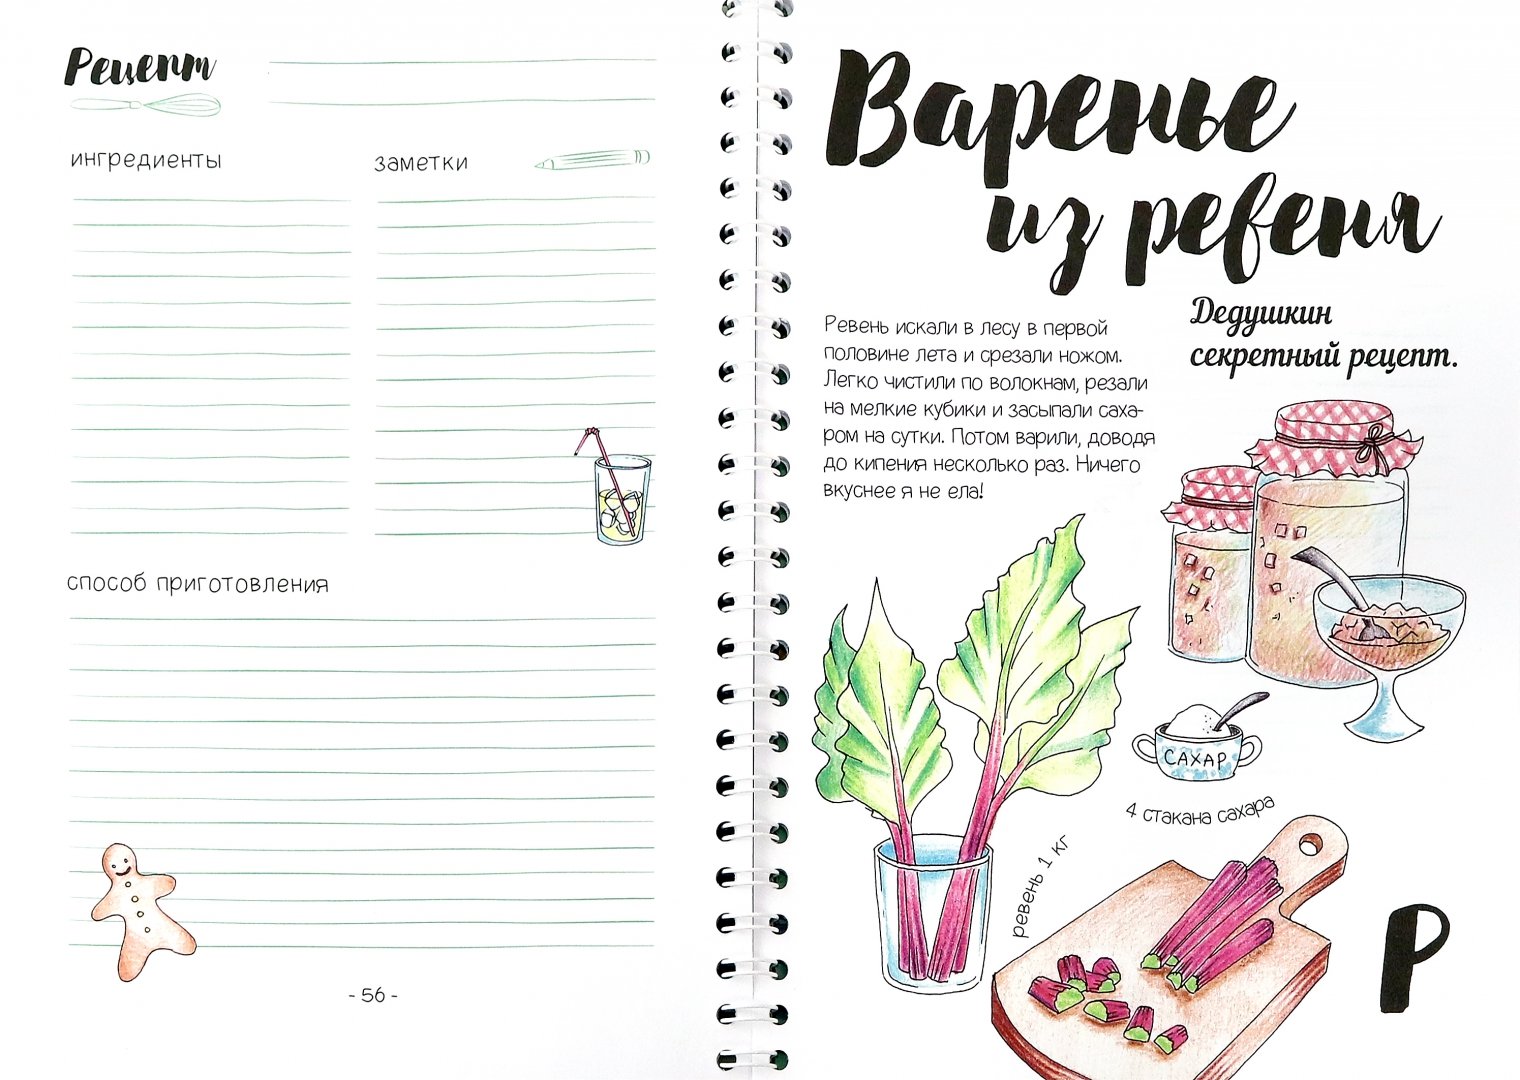 Рецепт
ингредиенты
заметки
способ приготовления
- 56 -
Варенье
из ревеня
Дедушкин
секретный рецепт.
Ревень искали в лесу в первой
половине лета и срезали ножом.
Легко чистили по волокнам, резали
на мелкие кубики и засыпали саха-
ром на сутки. Потом варили, доводя
до кипения несколько раз. Ничего
вкуснее я не ела!
САХАР
4 стакана сахара
ревень 1 кг
Р